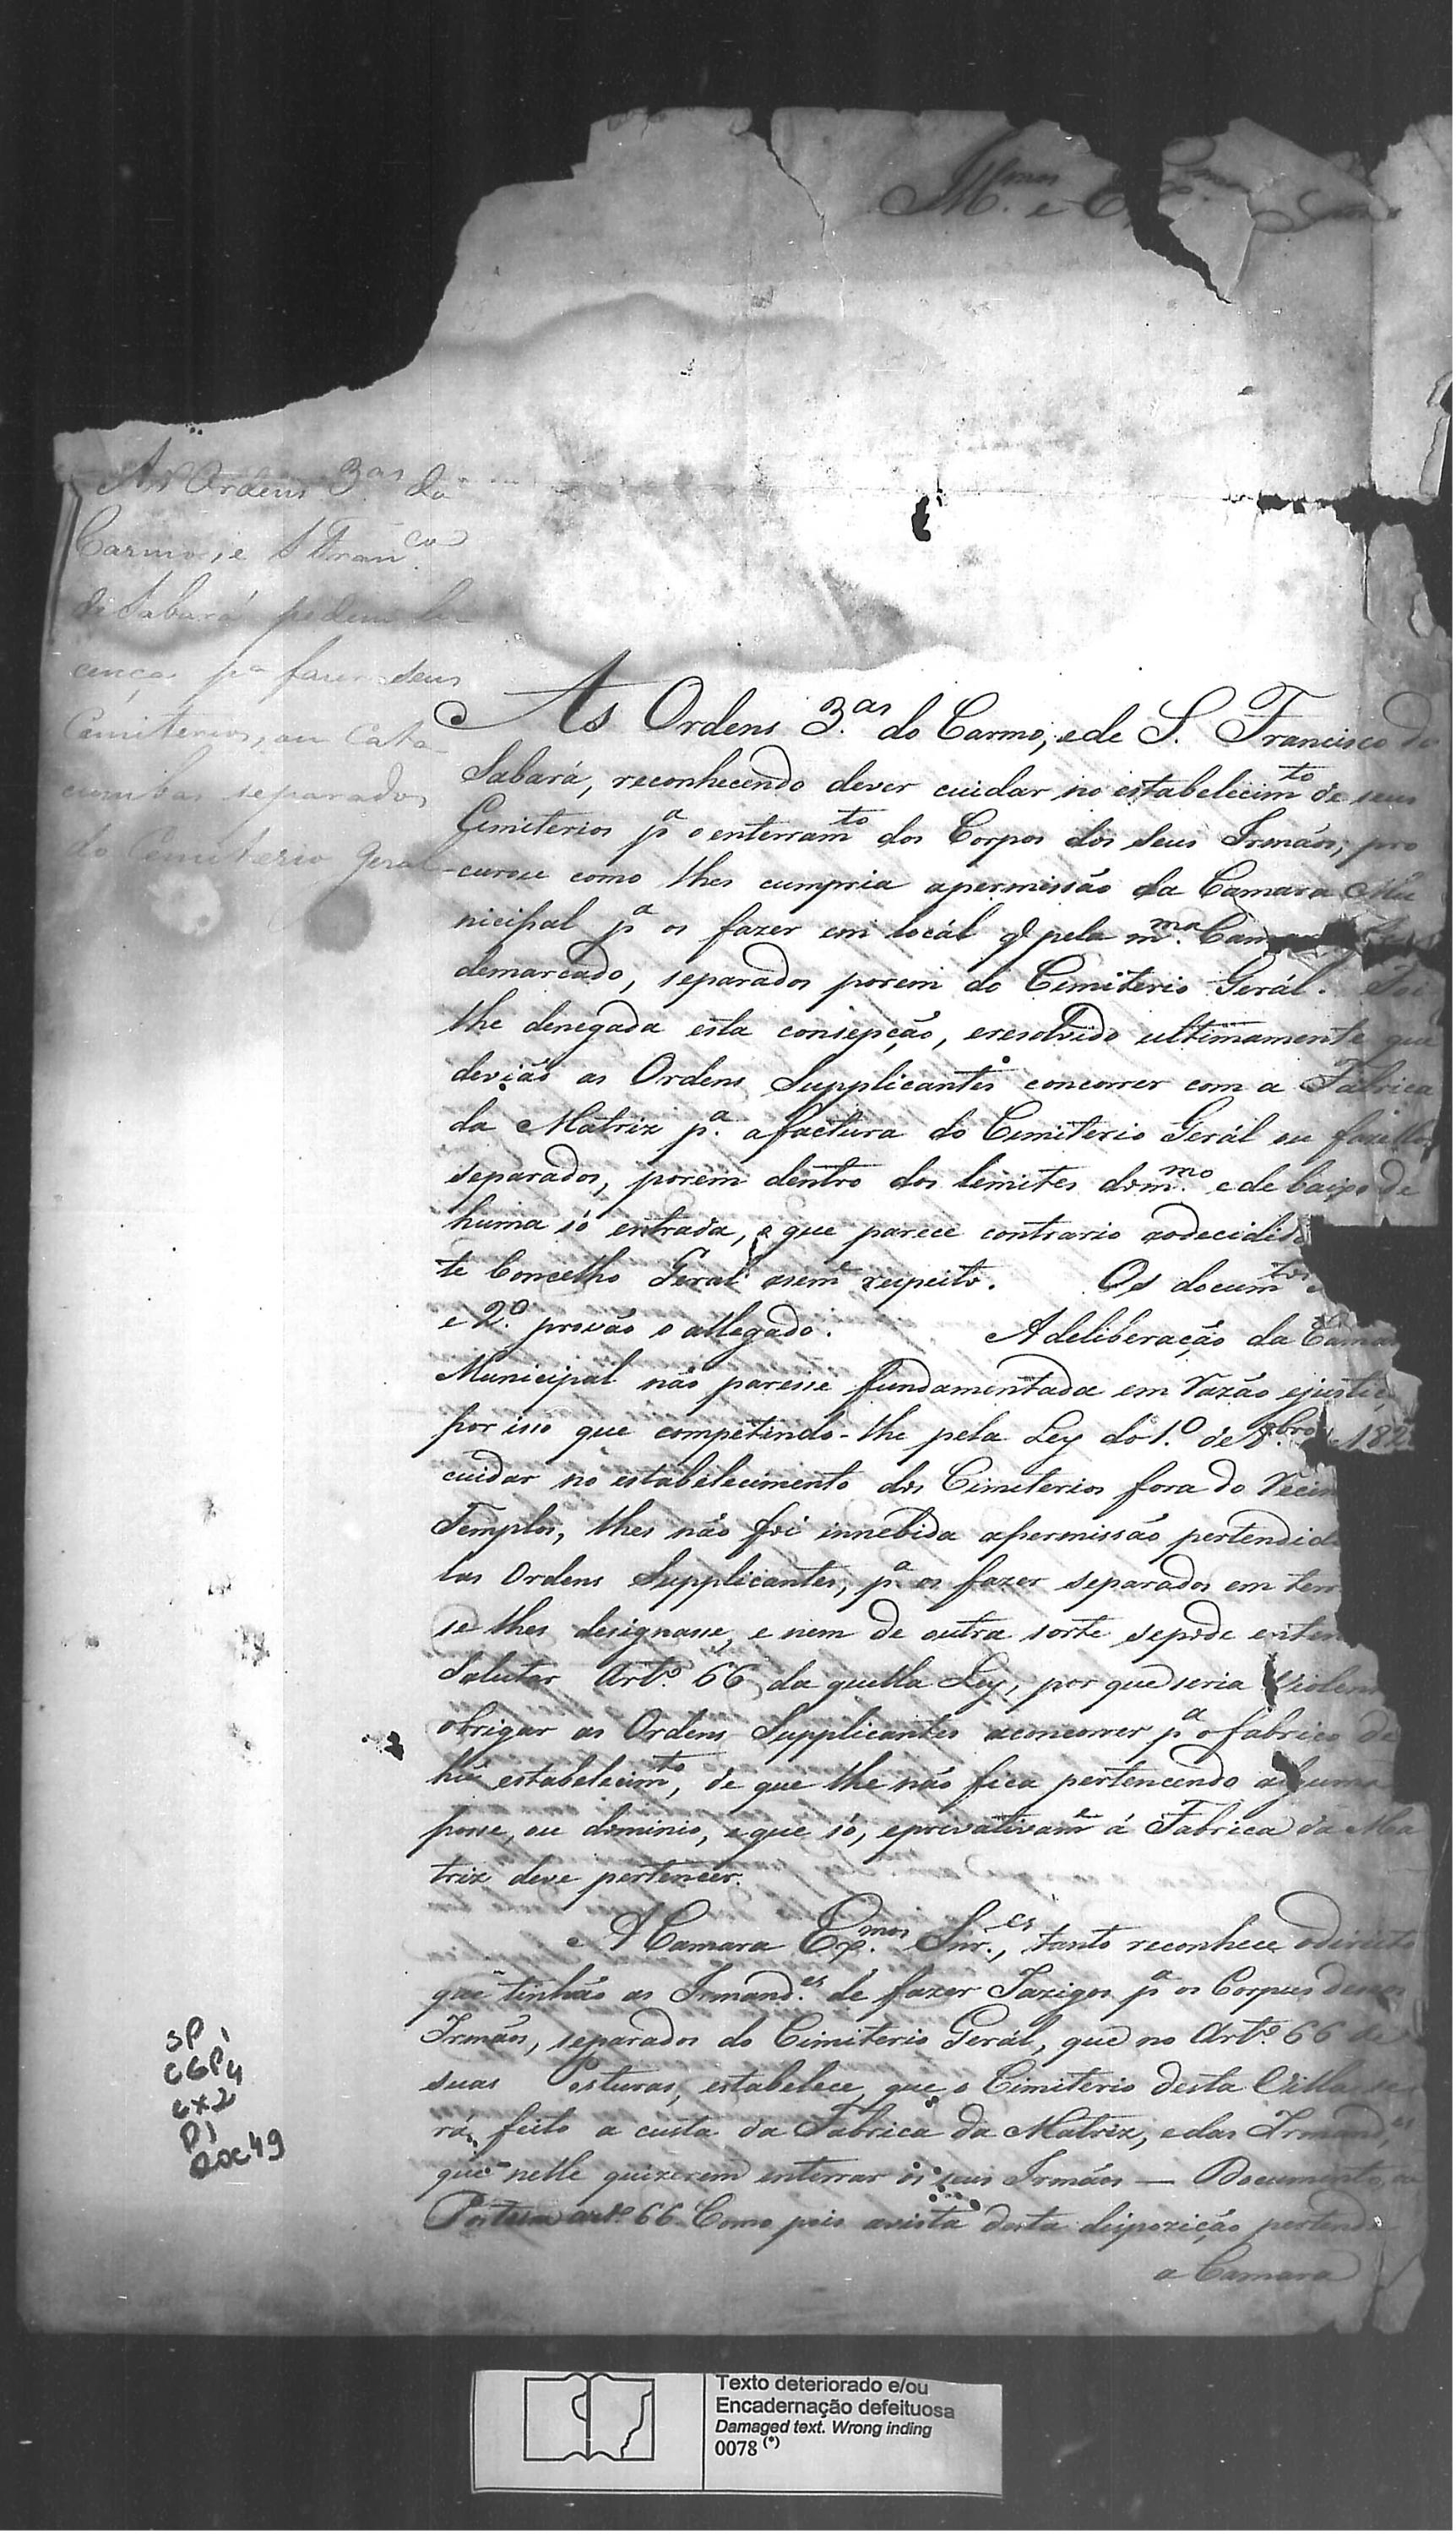 M.mos e E
As Ordens 3.as do
Carmo, e S Fran.co
de Sabará pedem li-
cença pa fazer seus
Cemiterios, ou Cata-
cumbas separados
do Cemiterio Geral
As Ordens 3.as do Carmo, e de S. Francisco do
Sabará, reconhecendo dever cuidar no estabelecimto de seus
Cemiterios pa o enterramto dos Corpos dos seus Irmãos, pro
curou como lhes cumpria apermissão da Camara Mu
nicipal pa os fazer em locál q pela m.ma Cam
demarcado, separados porem do Cemiterio Gerál. Foi
lhe denegada esta consepção, eresolvido ultimamente que
devião as Ordens Supplicantes concorrer com a Fabrica
da Matriz p.a afactura do Cemiterio Gerál ou fazellos
separados, porem dentro dos limites dom.mo ede baixo de
huma só entrada, o que parece contrario aodecidido
te Concelho Geral asemе respeito. Os documtos
e 2.o provão o allegado. Adeliberação da Cama
Municipal não paresse fundamentada em Razão ejustiç
por isso que competindo-lhe pela Ley do 1.o de 8.bro 182
cuidar no estabelecimento dos Cimiterios fora do Recin
Templos, lhes não foi innebida apermissão pertendid
las Ordens Supplicantes, pa os fazer separados em terr
se lhes designasse, e nem de outra sorte sepode enten
Salutar Arto 66 da quella Ley, por que seria Violen
obrigar as Ordens Supplicantes aconcorrer pa ofabrico de
hũ estabelecimto, de que lhe não fica pertencendo alguma
posse, ou dominio, eque só, eprivativame á Fabrica da Ma
triz deve pertencer.
A Camara Ex.mos Snr.es, tanto reconhece odireito
que tinhão as Irmand.es de fazer Jazigos pa os Corpus desses
Irmãos, separados do Cimiterio Gerál, que no Arto 66 de
suas Posturas, estabelece, que o Cimiterio desta Villa se
rá feito a custa da Fabrica da Matriz, edas Irmand.es
que nelle quizerem enterrar os seus Irmãos — Documento
Postura arto 66. Como pois avista desta dispozição pertende
a Camara
SP 1
CGP4
cx2
D1
Doc 49
Texto deteriorado e/ou
Encadernação defeituosa
Damaged text. Wrong inding
0078 (*)